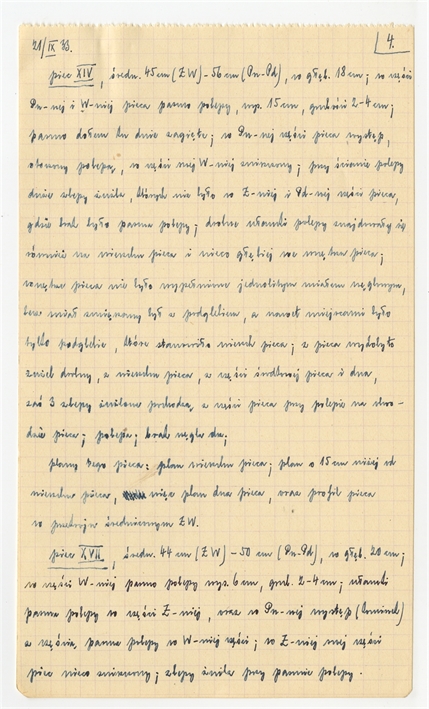 21/IX 33. 4.
piec XIV, średn. 45 cm (ZW) - 56 cm (Pn-Pd), w głęb. 18 cm; w części
Pn-nej i W-niej pieca pasmo polepy, wys. 15 cm, grubości 2-4 cm;
pasmo dołem ku dnie zagięte; w Pn-nej części pieca występ,
otoczony polepą, w części swej W-niej zniszczony; przy ścianie polepy
duże zlepy żużla, których nie było w Z-niej i Pd-nej części pieca,
gdzie brak było pasma polepy; drobne ułamki polepy znajdowały się
również na wierzchu pieca i nieco głębiej we wnętrzu pieca;
wnętrze pieca nie było wypełnione jednolitym miałem węglowym,
lecz miał zmieszany był z podglebiem, a nawet miejscami było
tylko podglebie, które stanowiło wierzch pieca; z pieca wydobyto
żużel drobny, z wierzchu pieca, z części środkowej pieca i dna,
zaś 3 zlepy żużlowe pochodzą z części pieca przy polepie na obwo-
dzie pieca; polepa; brak węgla drz.
plany tego pieca: plan wierzchu pieca; plan o 15 cm niżej od
wierzchu pieca, więc plan dna pieca, oraz profil pieca
w przekroju średnicowym ZW.
piec XVII, średn. 44 cm (ZW) - 50 cm (Pn-Pd), w głęb. 20 cm;
w części W-niej pasmo polepy wys. 6 cm, grub. 2-4 cm; ułamki
pasma polepy w części Z-niej, oraz w Pn-nej występ (kominek)
z częścią pasma polepy w W-niej części; w Z-niej swej części
piec nieco zniszczony; zlepy żużla przy pasmie polepy.